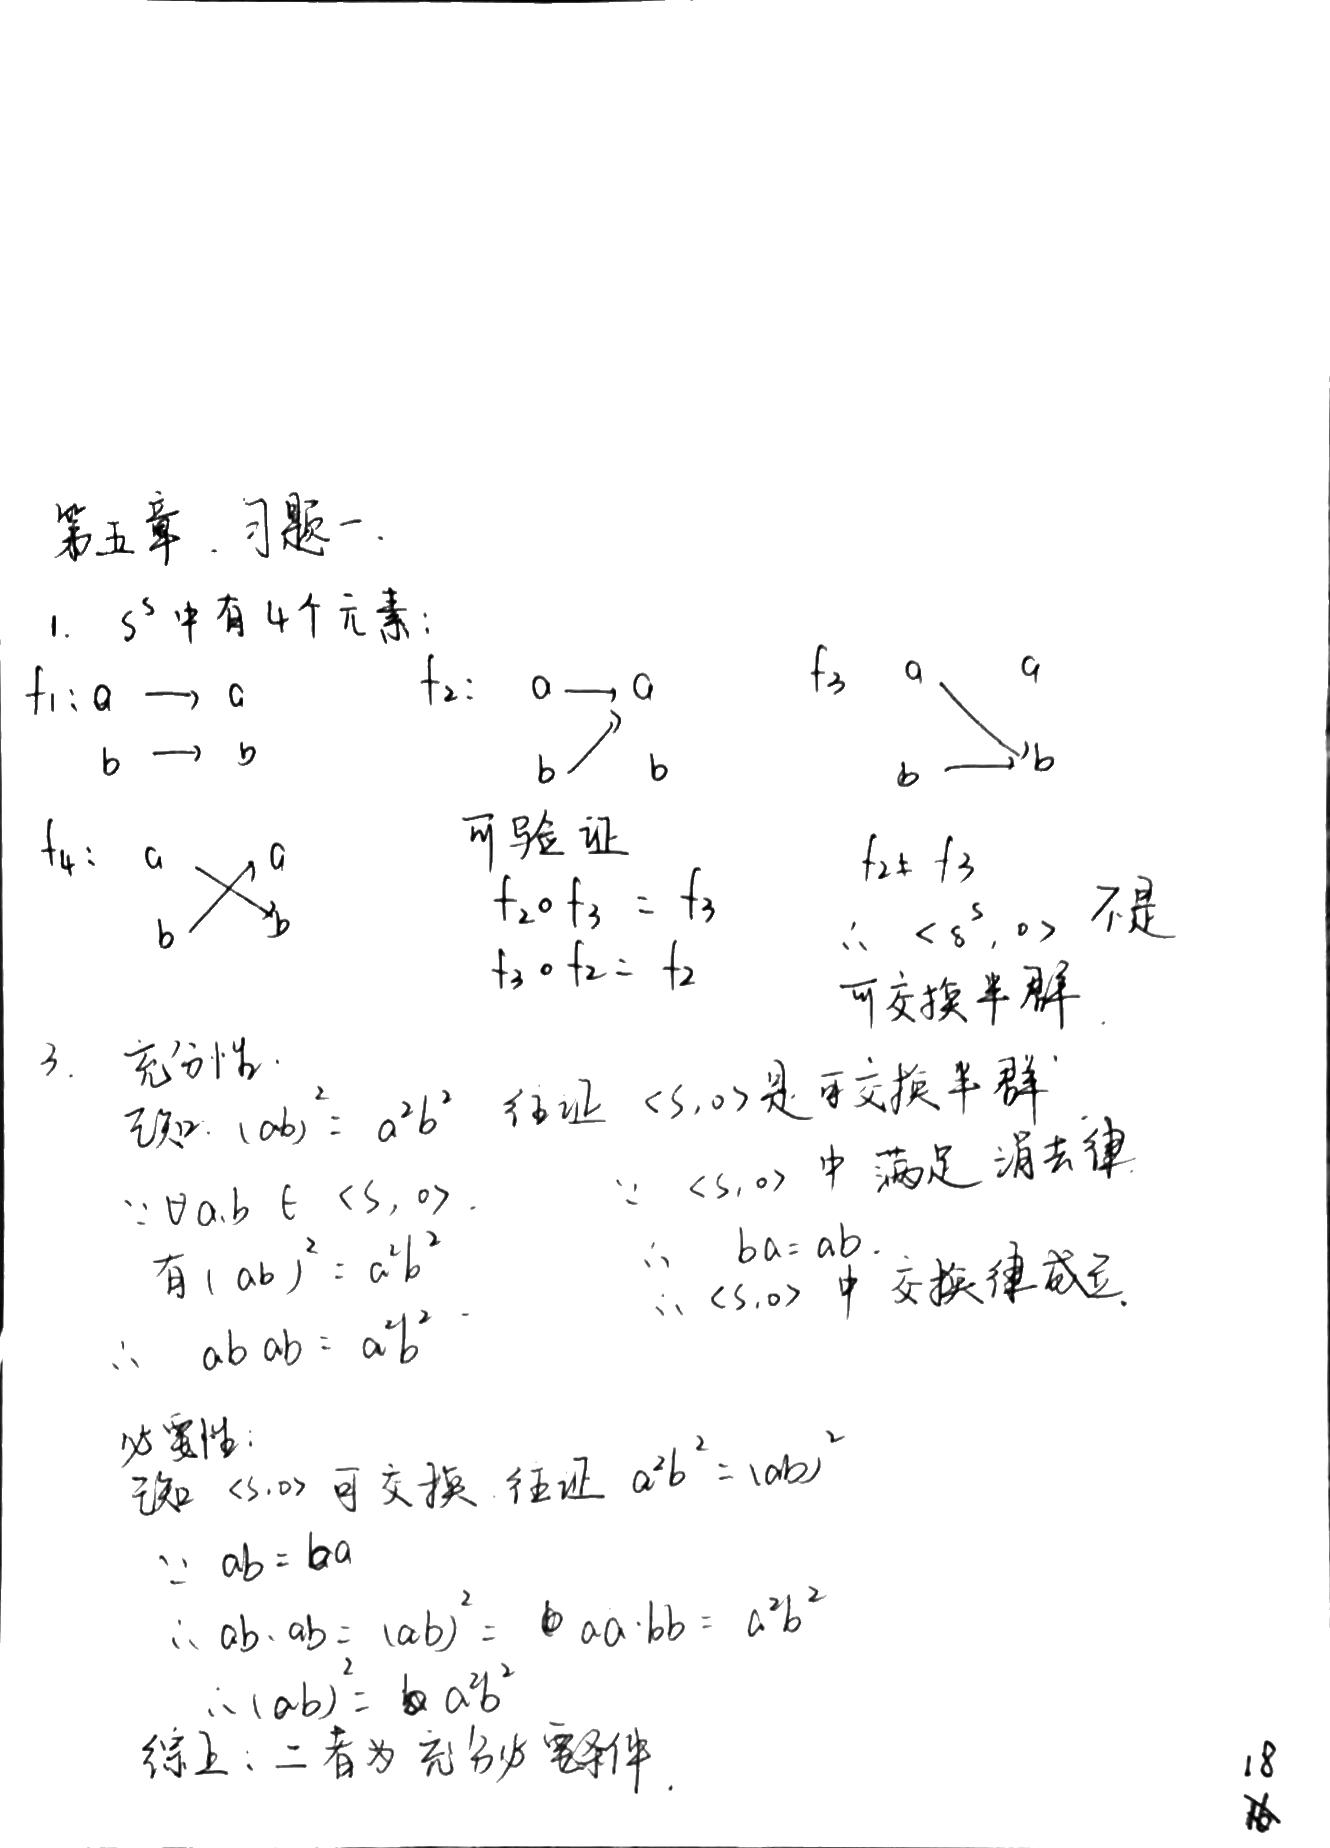 第五章. 习题一.
1. S^S中有4个元素:
f1: a → a
b → b
f2: a → a
b b
f3 a a
b → b
f4: a a
b b
可验证
f2∘f3 = f3
f3∘f2 = f2
f2≠f3
∴ <S^S,∘> 不是
可交换半群.
3. 充分性.
已知. (ab)²= a²b² 往证 <S,∘>是可交换半群.
∵∀a.b ∈ <S,∘>.
有(ab)²= a²b²
∴ abab = a²b².
∵ <S,∘> 中 满足 消去律.
∴ ba=ab.
∴ <S,∘> 中 交换律成立.
必要性:
已知 <S,∘>可交换.往证 a²b²=(ab)²
∵ ab=ba
∴ ab.ab=(ab)²= aa·bb= a²b²
∴(ab)²= a²b²
综上: 二者为充分必要条件.
18